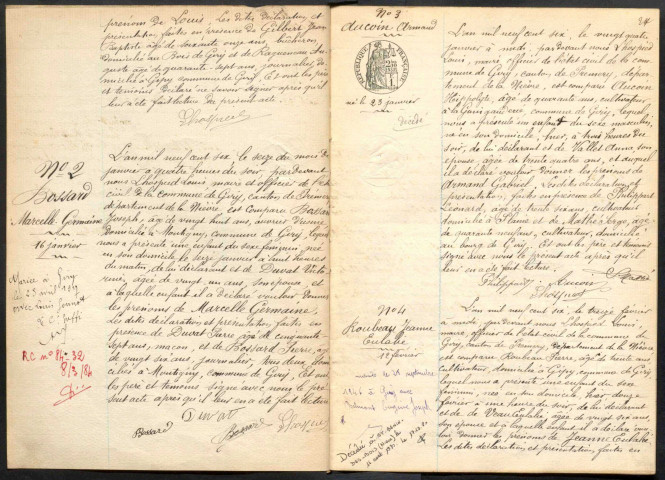 prénoms de Louis. Les dites déclaration et
présentation faites en présence de Gilbert Jean
Baptiste âgé de soixante onze ans, bûcheron,
domicilié au Bois de Giry et de Ragueneau Au-
guste âgé de quarante sept ans, journalier, do-
micilié à commune de Giry. Et ont les père
et témoins déclaré ne savoir signer après qu'il
leur a été fait lecture du présent acte.
Lhospied
No 2
Bossard
Marcelle Germaine
16 janvier
L'an mil neuf cent six, le seize du mois de
janvier à quatre heures du soir, par devant
nous Lhospied Louis, maire et officier de l'état
civil de la commune de Giry, canton de Prémery
département de la Nièvre, est comparu Bossard
Joseph, âgé de vingt huit ans, ouvrier
domicilié à Montigny, commune de Giry, lequel
nous a présenté une enfant du sexe féminin née
en son domicile le seize janvier à huit heures
du matin, de lui déclarant et de Duvat Victo-
rine, âgée de vingt un ans, son épouse et
à laquelle enfant il a déclaré vouloir donner
les prénoms de Marcelle Germaine,
Les dites déclaration et présentation faites en
présence de Duvat Pierre âgé de cinquante
sept ans, maçon, et de Bossard Pierre, âgé
de vingt six ans, journalier, tous deux domi-
ciliés à Montigny, commune de Giry, Et ont
les père et témoins signé avec nous le pré-
sent acte après qu'il leur en a été fait lecture
Mariée à Giry
le 23 avril 1927
avec
R.C. no 84-32
8/3/84
Bossard
Duvat
Bossard
Lhospied
24
No 3
Aucoin Armand
RÉPUBLIQUE FRANÇAISE
né le 23 janvier
décédé
L'an mil neuf cent six, le vingt quatre
janvier à midi, par devant nous Lhospied
Louis, maire, officier de l'état civil de la com-
mune de Giry, canton de Prémery, dépar-
tement de la Nièvre, est comparu Aucoin
Hippolyte, âgé de quarante ans, cultivateur,
à la commune de Giry, lequel
nous a présenté un enfant du sexe masculin,
né en son domicile, hier, à trois heures du
soir, de lui déclarant et de Vallet Anna, son
épouse, âgée de trente quatre ans, et auquel
il a déclaré vouloir donner les prénoms de
Armand Gabriel. Les dites déclaration et
présentation, faites en présence de Philippot
Léonard, âgé de ans, cultivateur,
domicilié à et de âgé
de quarante neuf ans, cultivateur, domicilié
au bourg de Giry. Et ont les père et témoins
signé avec nous le présent acte après qu'il
leur en a été fait lecture.
Philippot
Aucoin
Lhospied
No 4
Roubeau Jeanne
Eulalie
12 février
L'an mil neuf cent six, le treize février
à midi, par devant nous Lhospied Louis,
maire, officier de l'état civil de la commune
de Giry, canton de Prémery, département de la Nièvre
est comparu Roubeau Pierre, âgé de trente ans
cultivateur, domicilié à commune de Giry
lequel nous a présenté une enfant du sexe
féminin, née en son domicile, hier douze
février à une heure du soir, de lui déclarant
et de âgée de vingt six ans,
son épouse et à laquelle enfant il a déclaré vou-
loir donner les prénoms de Jeanne Eulalie.
Les dites déclaration et présentation, faites en